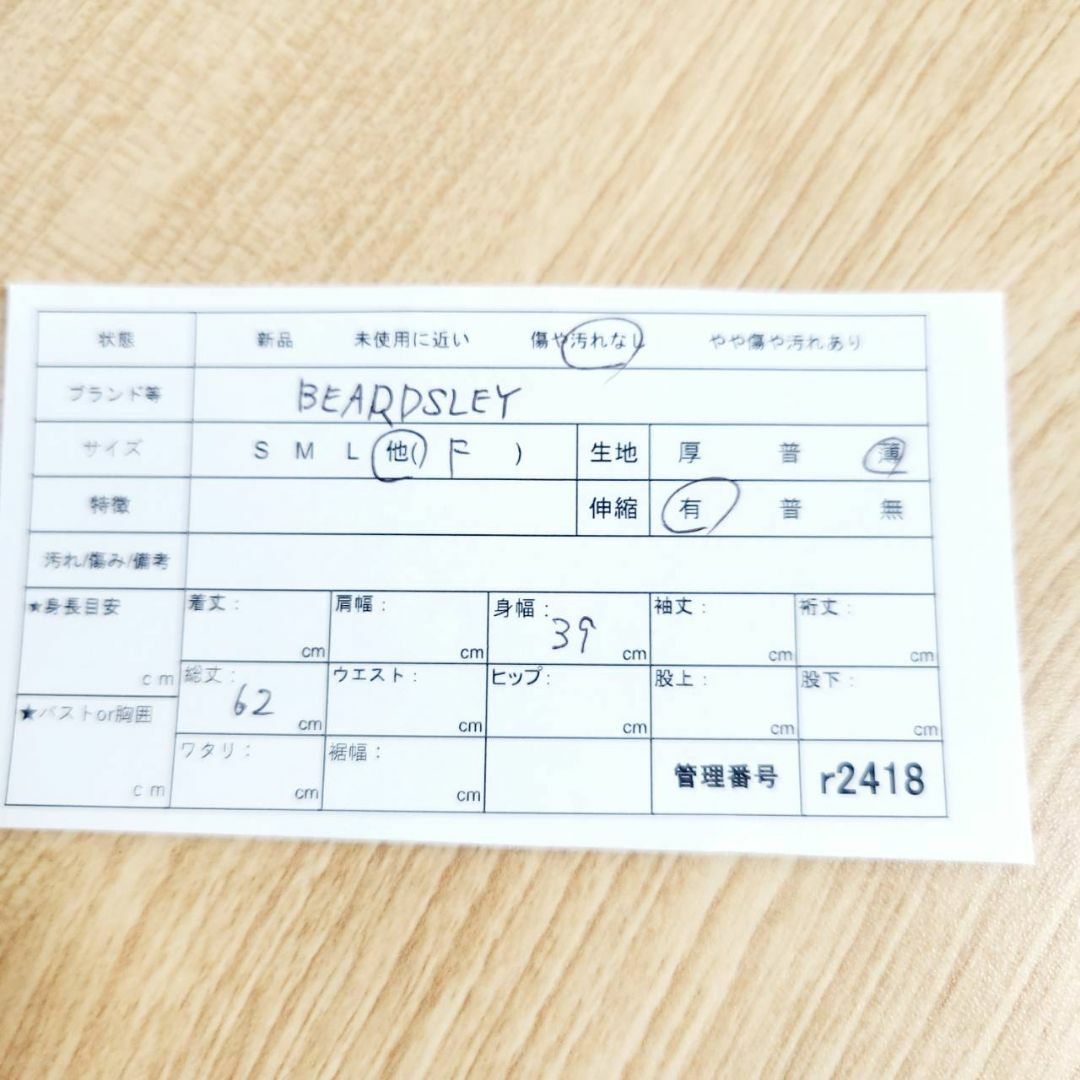 状態 新品 未使用に近い 傷や汚れなし やや傷や汚れあり
ブランド等 BEARDSLEY
サイズ S M L 他( F ) 生地 厚 普 薄
特徴 伸縮 有 普 無
汚れ/傷み/備考
★身長目安 cm
着丈: cm 肩幅: cm 身幅: 39 cm 袖丈: cm 裄丈: cm
総丈: 62 cm ウエスト: cm ヒップ: cm 股上: cm 股下: cm
★バストor胸囲 cm
ワタリ: cm 裾幅: cm 管理番号 r2418